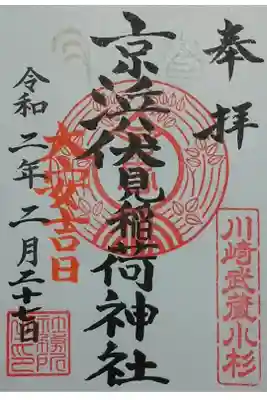 奉拝
京浜伏見稲荷神社
川崎武蔵小杉
大安吉日
令和二年二月二十七日